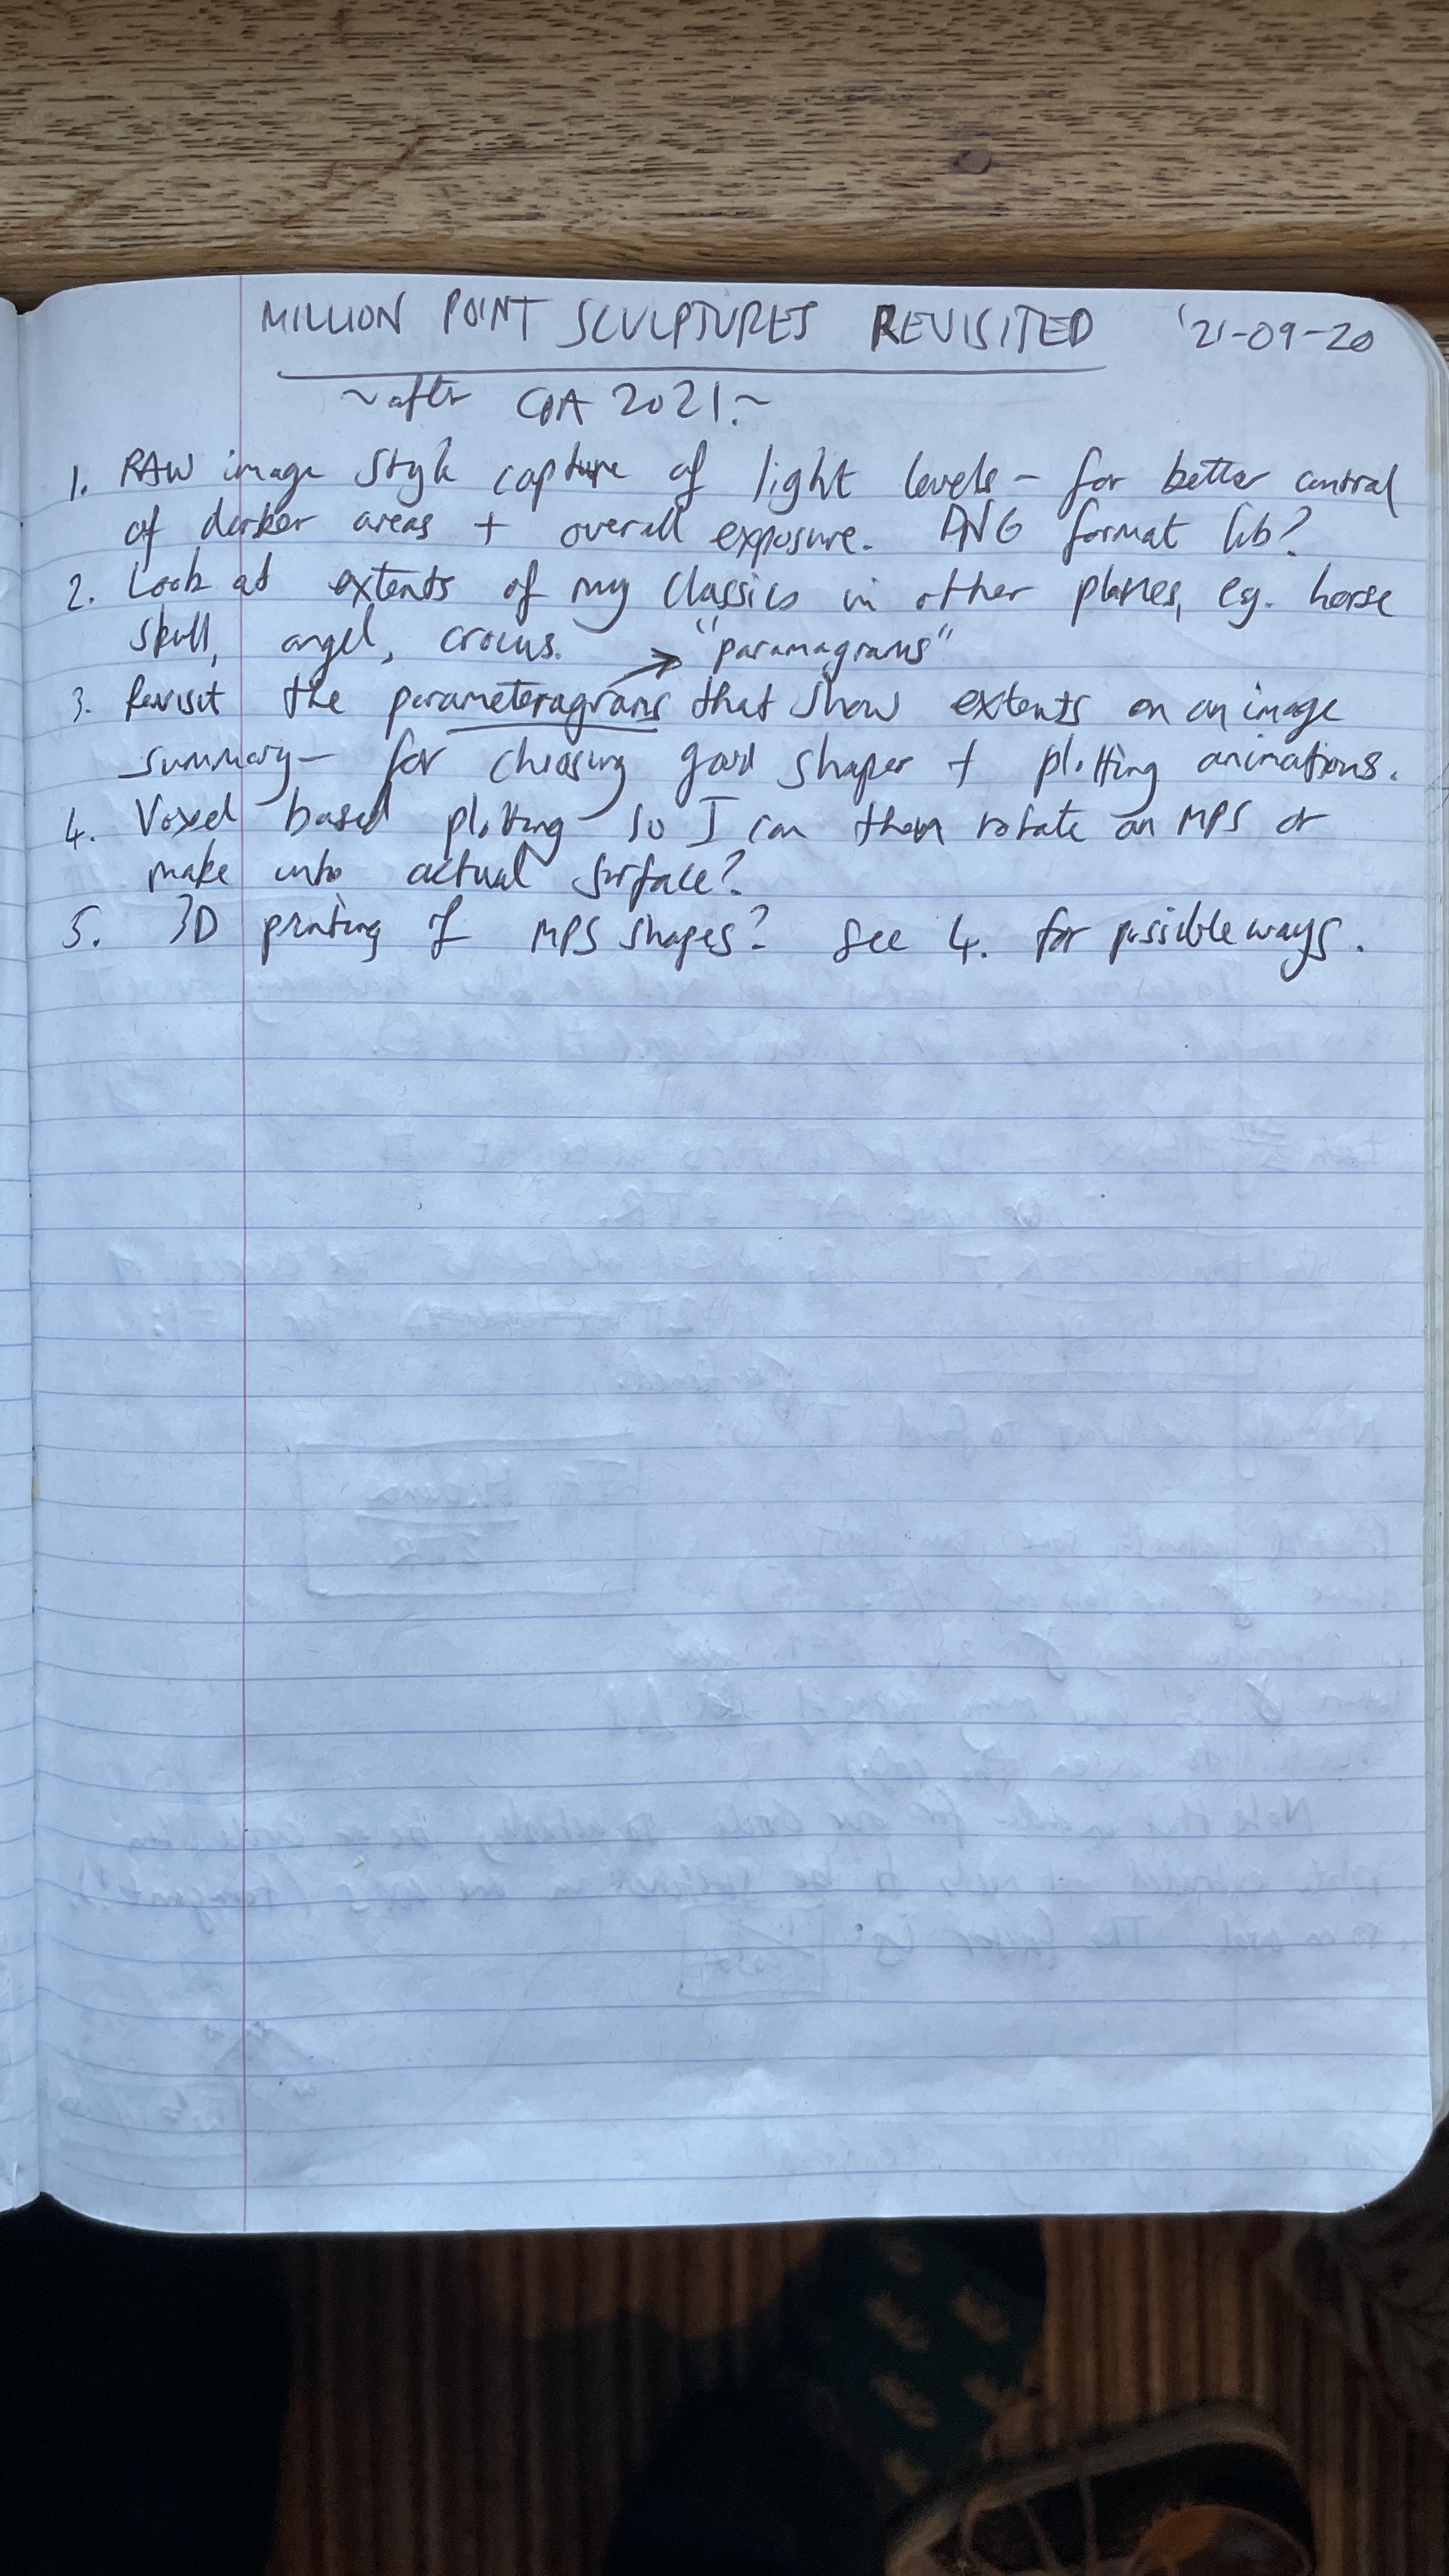 MILLION POINT SCULPTURES REVISITED '21-09-20
~after 2021.~
1. RAW image style capture of light levels - for better control
of darker areas + overall exposure. DNG format lib?
2. Look at extents of my classics in other planes, eg. horse
skull, angel, crocus. "paramagrams"
3. Revisit the parameteragrams that show extents on an image
summary - for choosing good shapes + plotting animations.
4. Voxel based plotting so I can then rotate an MPS or
make into actual surface?
5. 3D printing of MPS shapes? See 4. for possible ways.